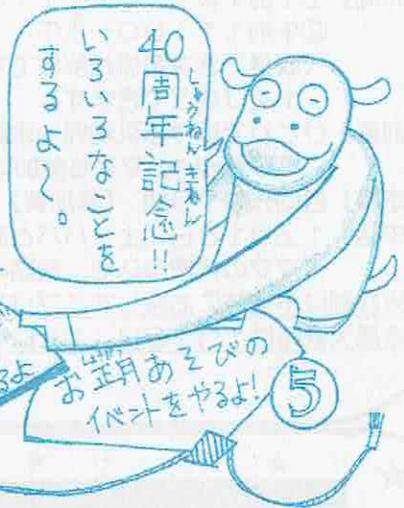 40周年記念!!
しゅうねん きねん
いろいろなことを
するよ〜。
るよ
お正月あそびの
イベントをやるよ!
⑤